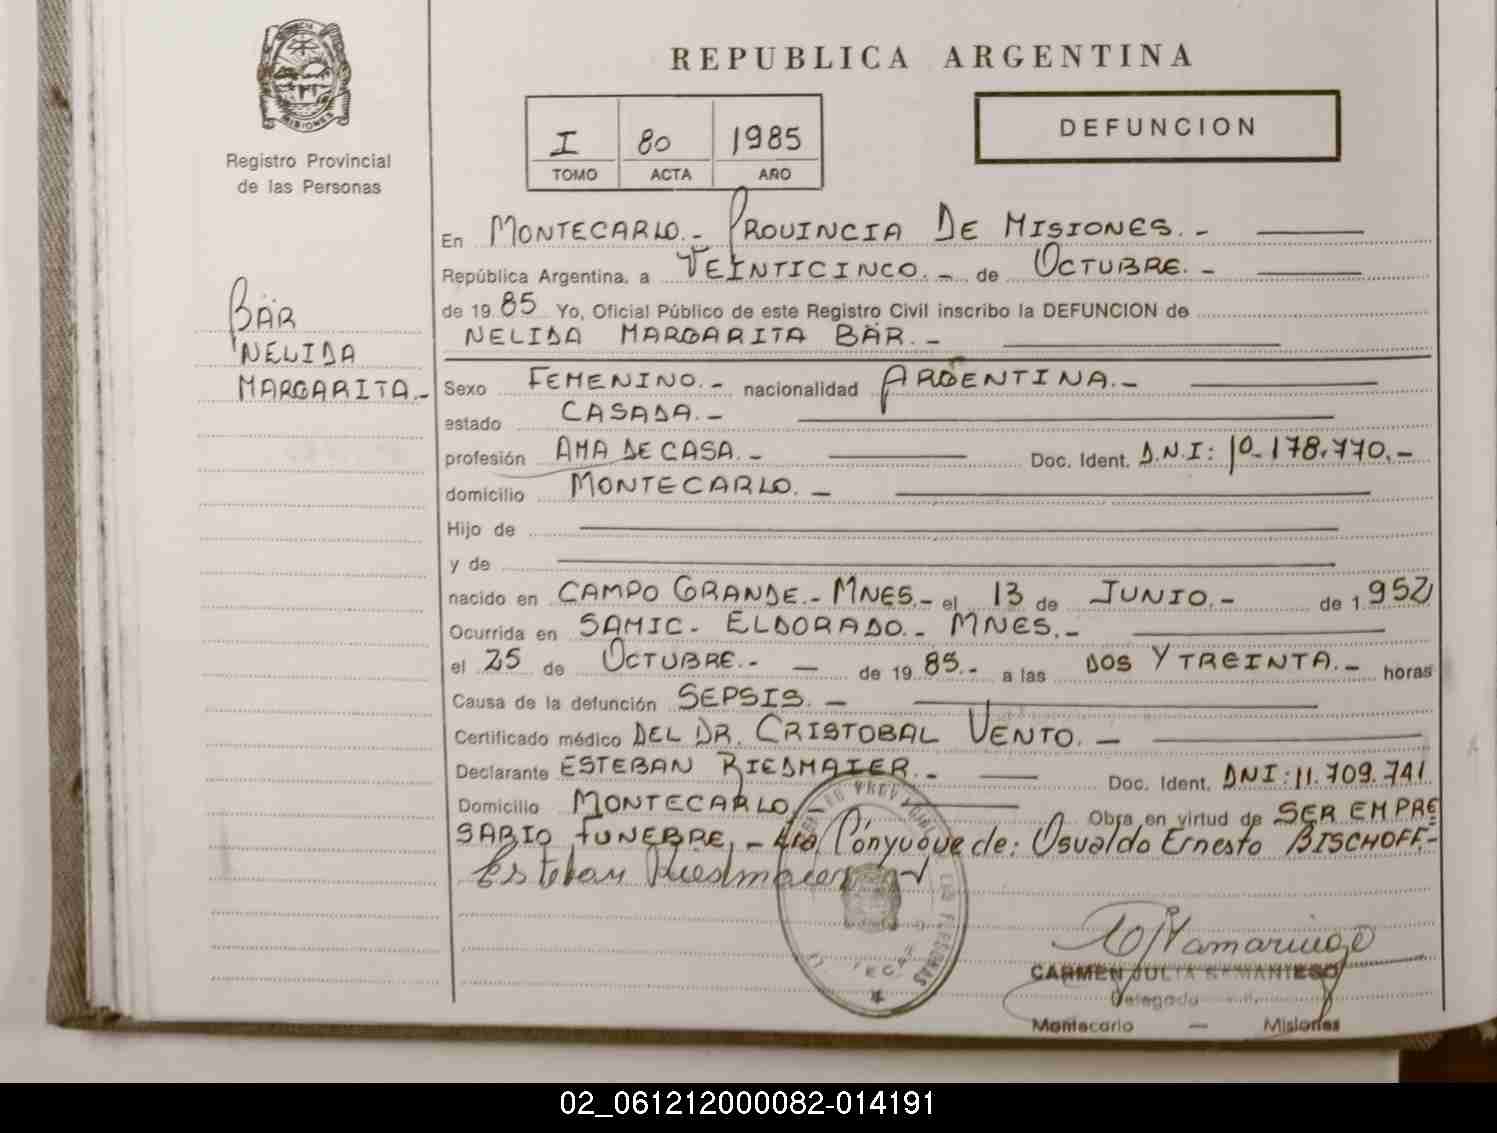 REPUBLICA ARGENTINA
MISIONES
Registro Provincial
de las Personas
I 80 1985
TOMO ACTA AÑO
DEFUNCION
BÄR
NELIDA
MARGARITA.-
En MONTECARLO.- PROVINCIA DE MISIONES.-
República Argentina, a VEINTICINCO.- de OCTUBRE.-
de 1985 Yo, Oficial Público de este Registro Civil inscribo la DEFUNCION de
NELIDA MARGARITA BÄR.-
Sexo FEMENINO.- nacionalidad ARGENTINA.-
estado CASADA.-
profesión AMA DE CASA.- Doc. Ident. D.N.I: 10.178.770.-
domicilio MONTECARLO.-
Hijo de
y de
nacido en CAMPO GRANDE.- MNES.- el 13 de JUNIO.- de 1.952
Ocurrida en SAMIC- ELDORADO.- MNES.-
el 25 de OCTUBRE.- de 1985.- a las DOS Y TREINTA.- horas
Causa de la defunción SEPSIS.-
Certificado médico DEL DR. CRISTOBAL VENTO.-
Declarante ESTEBAN RIEDMAIER.- Doc. Ident. DNI: 11.709.741
Domicilio MONTECARLO.- Obra en virtud de SER EMPRE
SARIO FUNEBRE.- Cónyugue de: Osvaldo Ernesto BISCHOFF.-
Esteban Riedmaier
CARMEN JULIA SAMANIEGO
Delegada
Montecarlo — Misiones
02_061212000082-014191